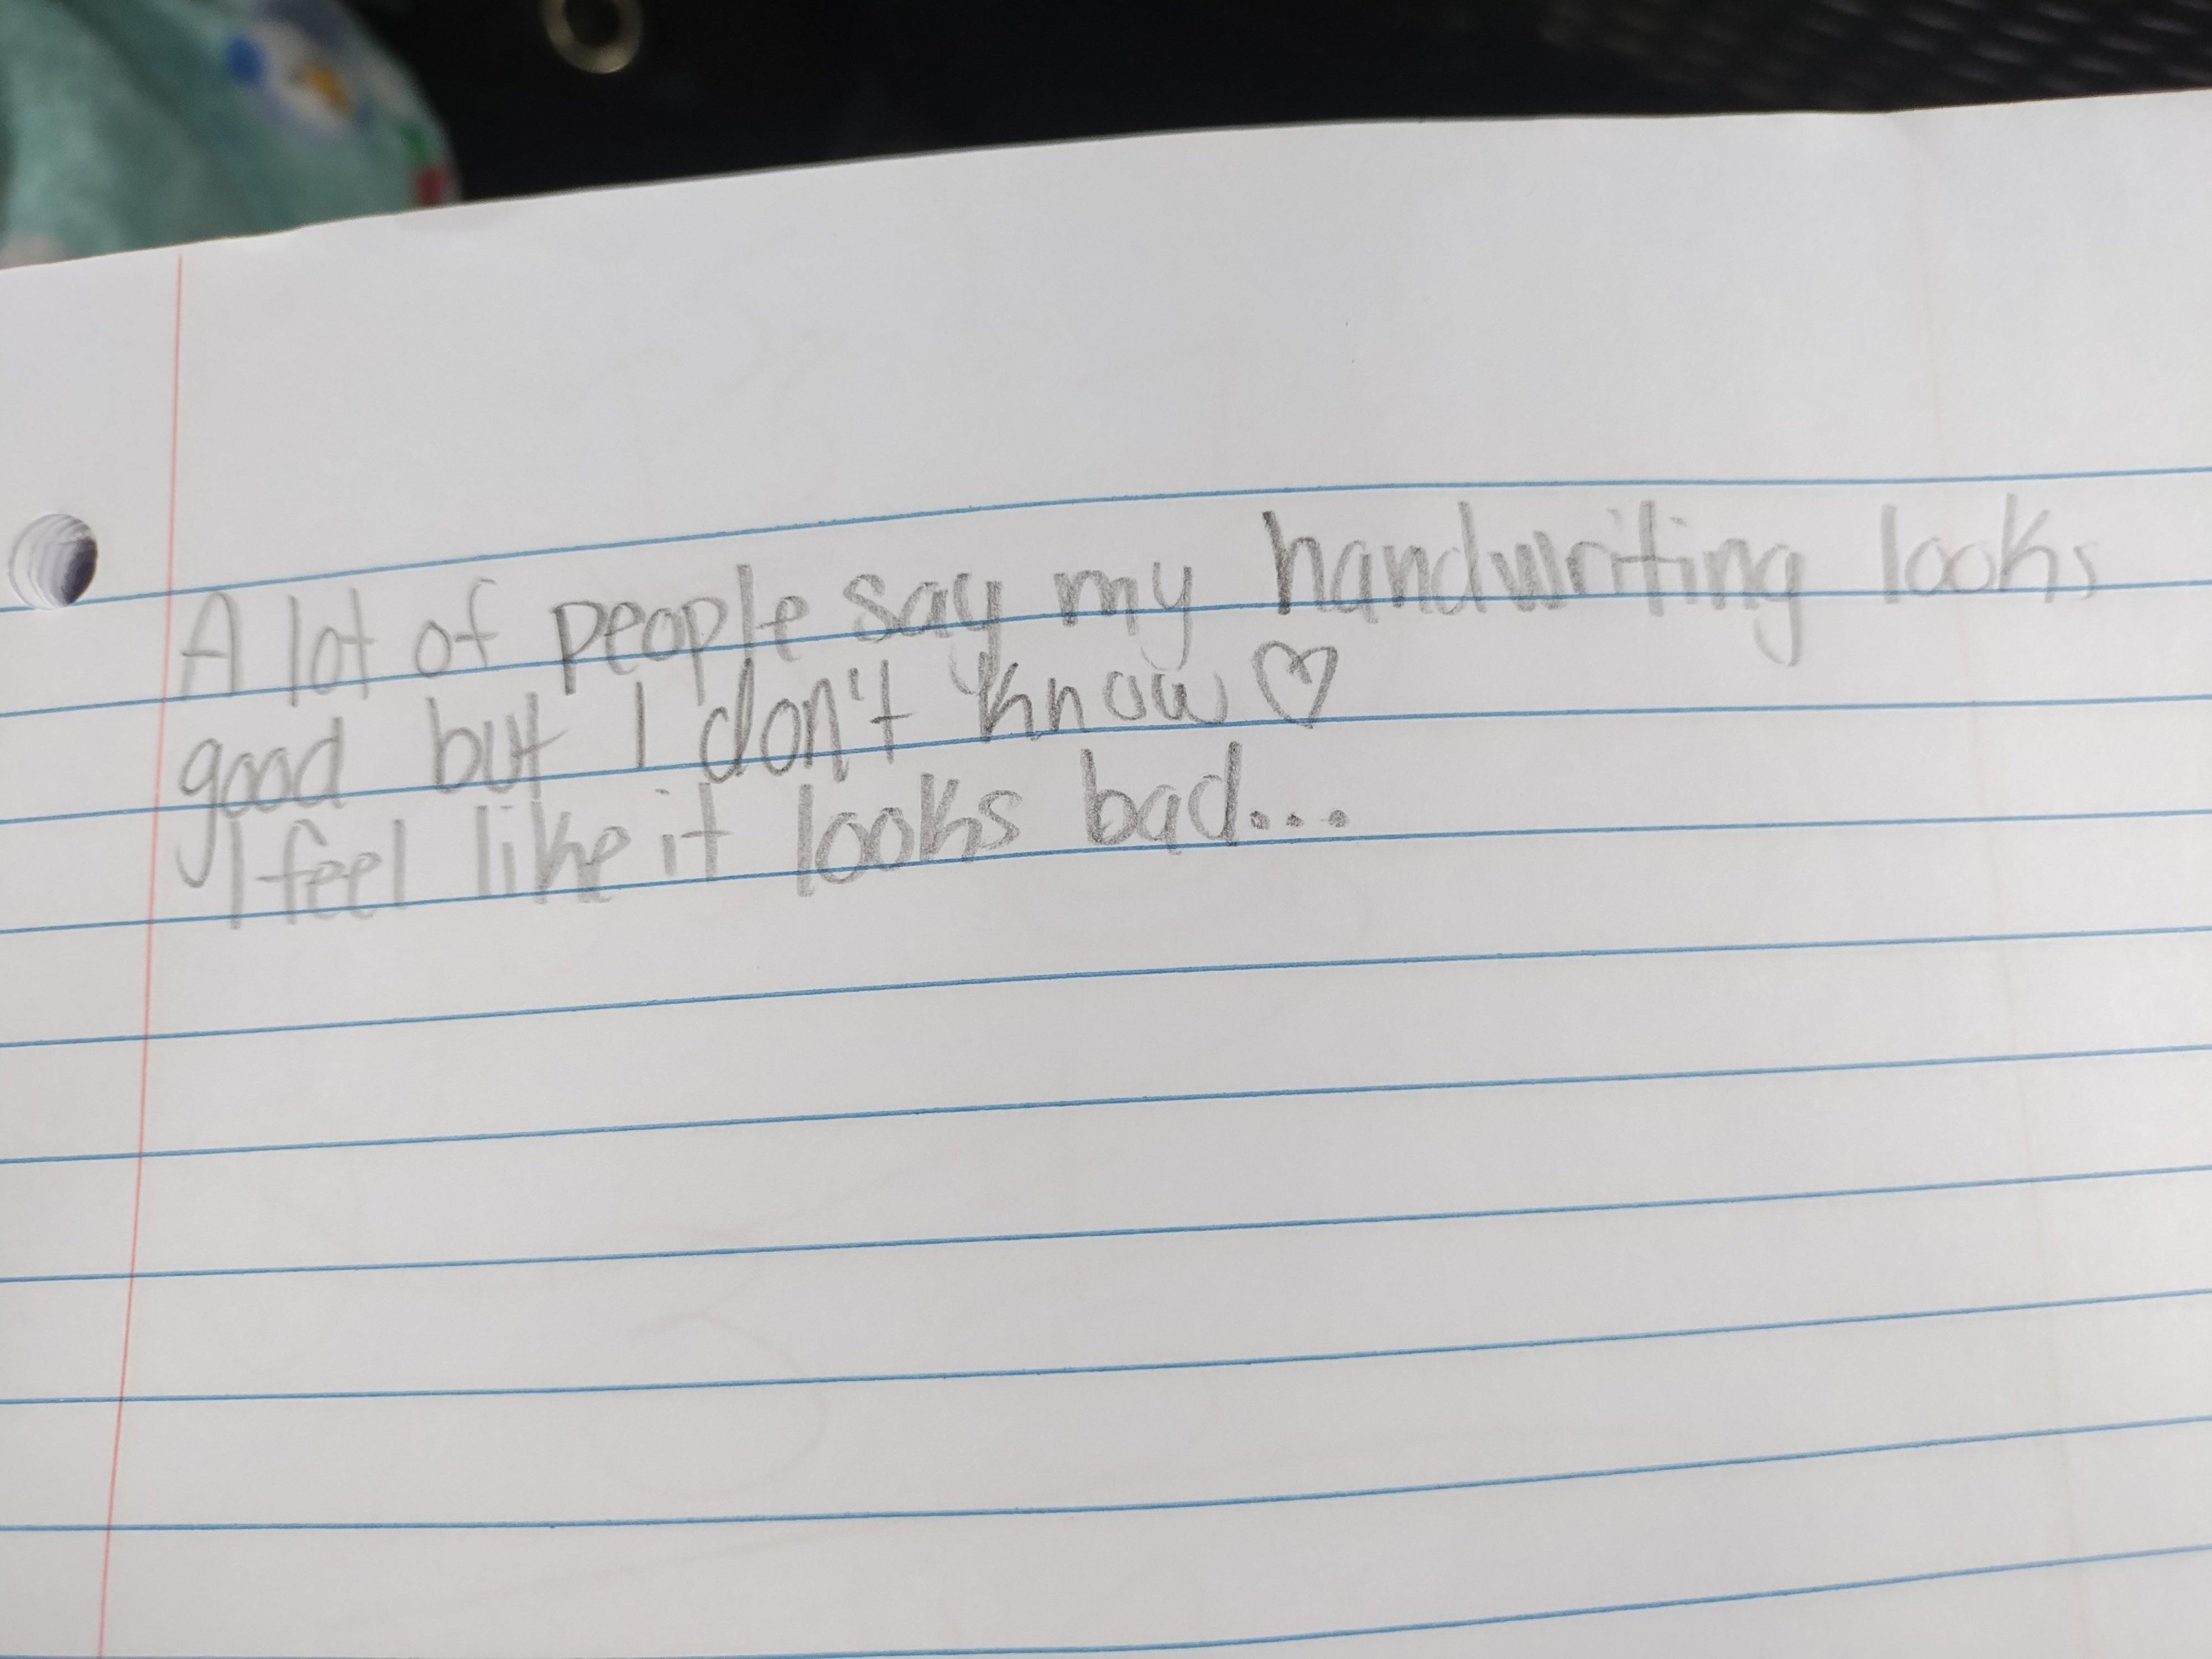 A lot of people say my handwriting looks
good but I don't know ♡
I feel like it looks bad...